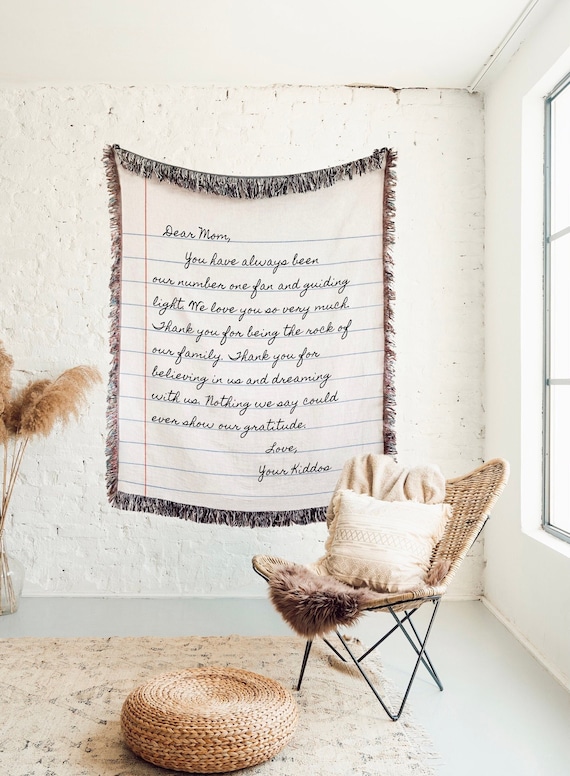 Dear Mom,
You have always been
our number one fan and guiding
light. We love you so very much.
Thank you for being the rock of
our family. Thank you for
believing in us and dreaming
with us. Nothing we say could
ever show our gratitude.
Love,
Your Kiddos